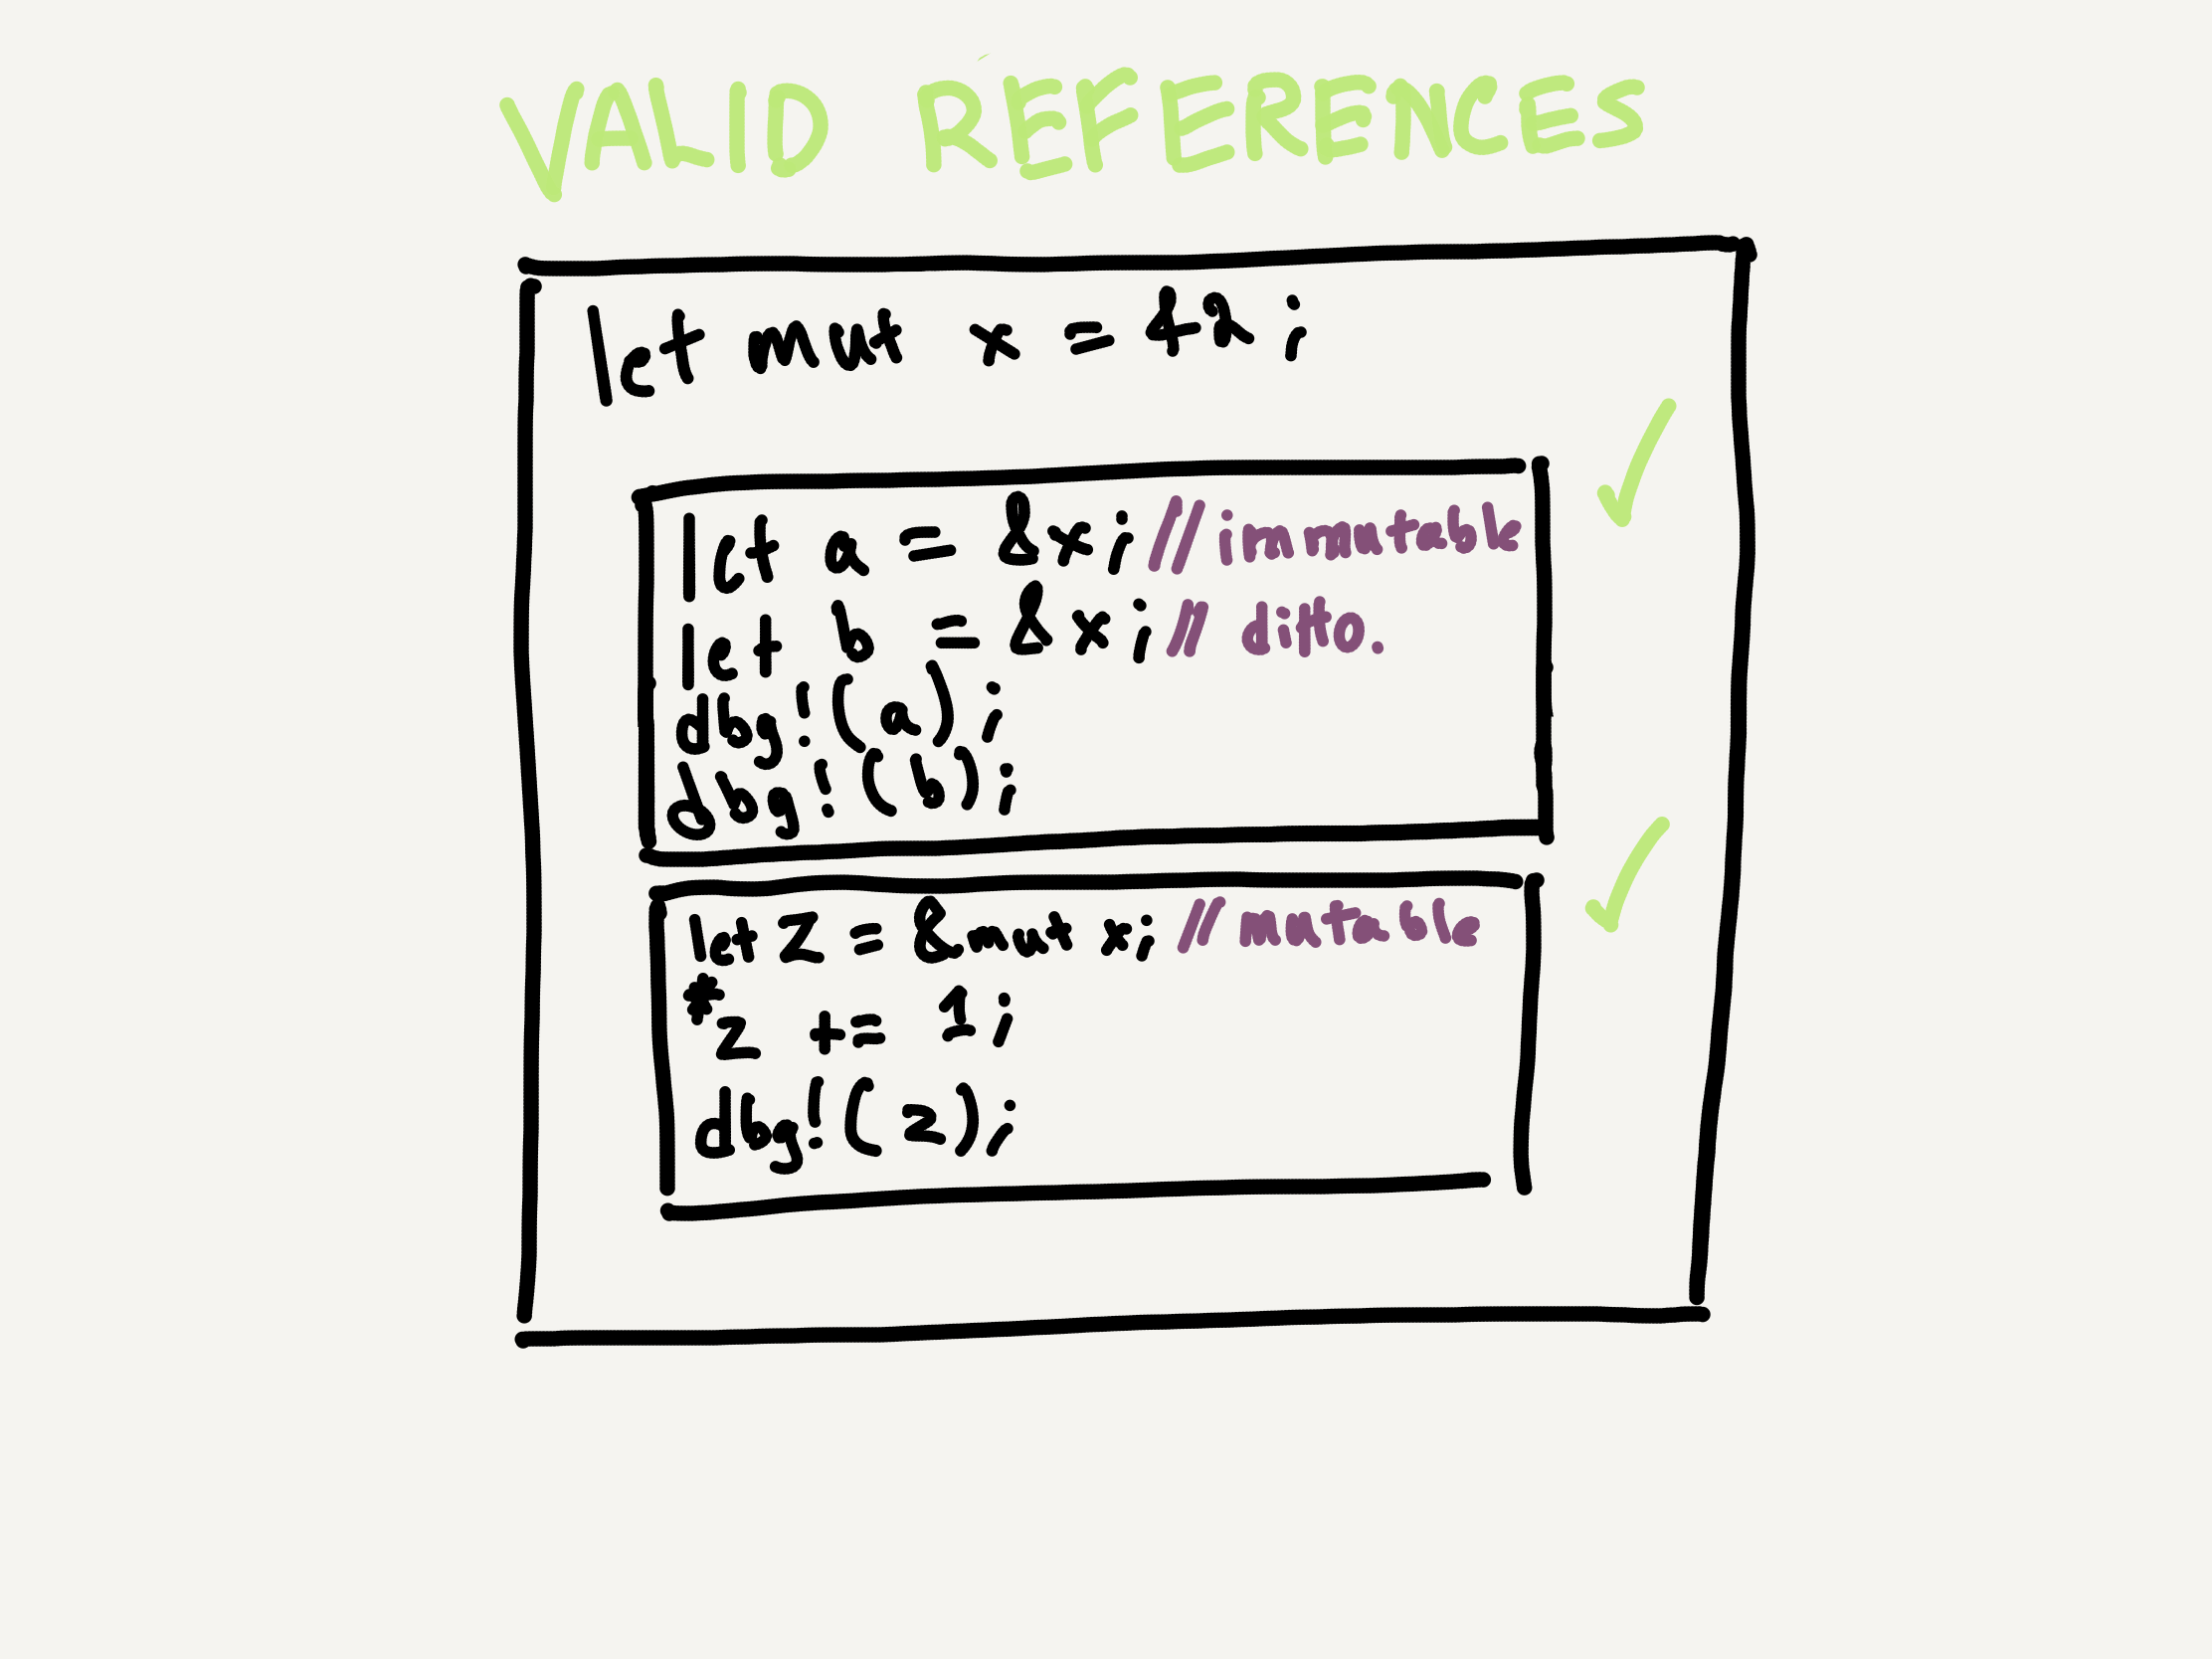 VALID REFERENCES
let mut x = 42;
let a = &x; // immutable
let b = &x; // ditto.
dbg!(a);
dbg!(b);
let z = &mut x; // mutable
*z += 1;
dbg!(z);